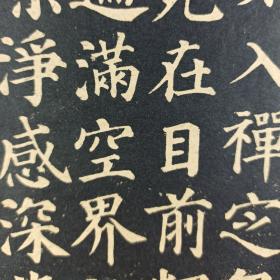 入禪定
在目前
滿空界
淨感深